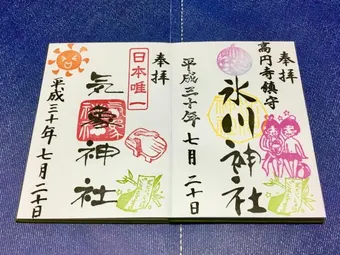 奉拝
高円寺鎮守
氷川神社
平成三十年七月二十日
奉拝
日本唯一
気象神社
平成三十年七月二十日